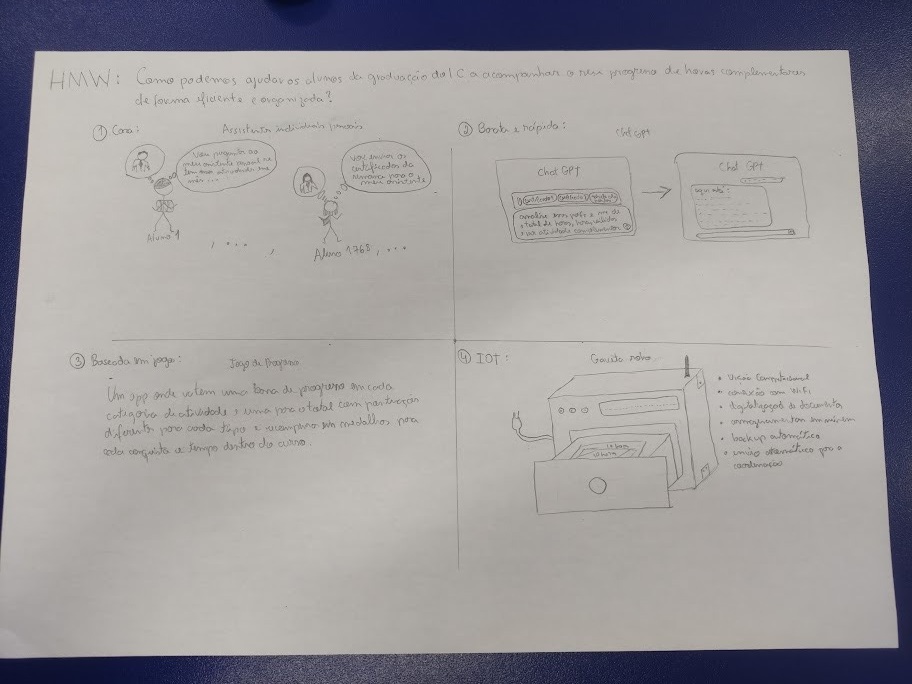 HMW: Como podemos ajudar os alunos da graduação do IC a acompanhar o seu progresso de horas complementares
de forma eficiente e organizada?
① Cara:
Assistentes individuais pessoais
Vou perguntar ao
meu assistente pessoal se
tem mais atividades
Vou enviar os
certificados da
semana para o
meu assistente
Aluno 1
, ... ,
Aluno 1768, ...
② Barata e rápida:
Chat GPT
Chat GPT
analise esses pdfs e me dê
o total de horas, horas válidas
atividade complementar
Chat GPT
aqui está:
③ Baseada em jogos:
Jogo de Progresso
Um app onde vc tem uma barra de progresso em cada
categoria de atividade e uma para o total com pontuação
diferente para cada tipo e acompanha em medalhas para
cada conquista e tempo dentro do curso.
④ IOT:
Gaveta robo
• Visão Computacional
• conexão com WiFi
• digitalização de documentos
• armazenamento em nuvem
• backup automático
• envio automático para a
coordenação